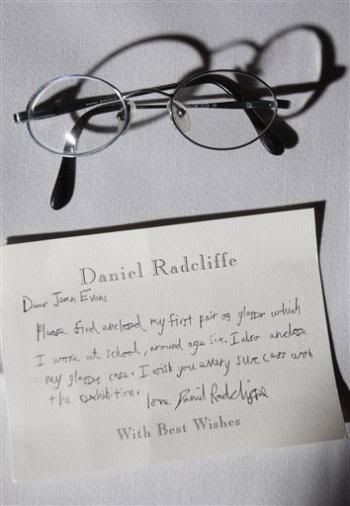 Daniel Radcliffe
Dear Joan Evans
Please find enclosed my first pair of glasses which
I wore at school, around age six. I also enclose
my glasses case. I wish you every success with
the exhibition.
love Daniel Radcliffe
With Best Wishes